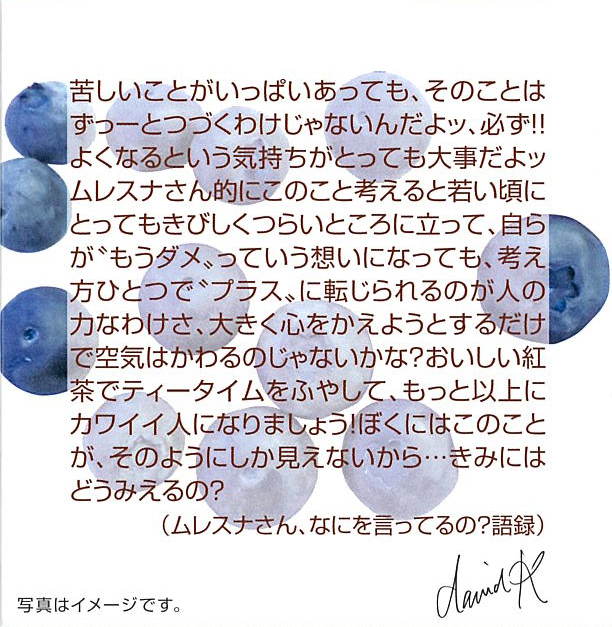 苦しいことがいっぱいあっても、そのことは
ずっーとつづくわけじゃないんだよッ、必ず!!
よくなるという気持ちがとっても大事だよッ
ムレスナさん的にこのこと考えると若い頃に
とってもきびしくつらいところに立って、自ら
が〝もうダメ〟っていう想いになっても、考え
方ひとつで〝プラス〟に転じられるのが人の
力なわけさ、大きく心をかえようとするだけ
で空気はかわるのじゃないかな?おいしい紅
茶でティータイムをふやして、もっと以上に
カワイイ人になりましょう!ぼくにはこのこと
が、そのようにしか見えないから…きみには
どうみえるの?
(ムレスナさん、なにを言ってるの?語録)
david K
写真はイメージです。